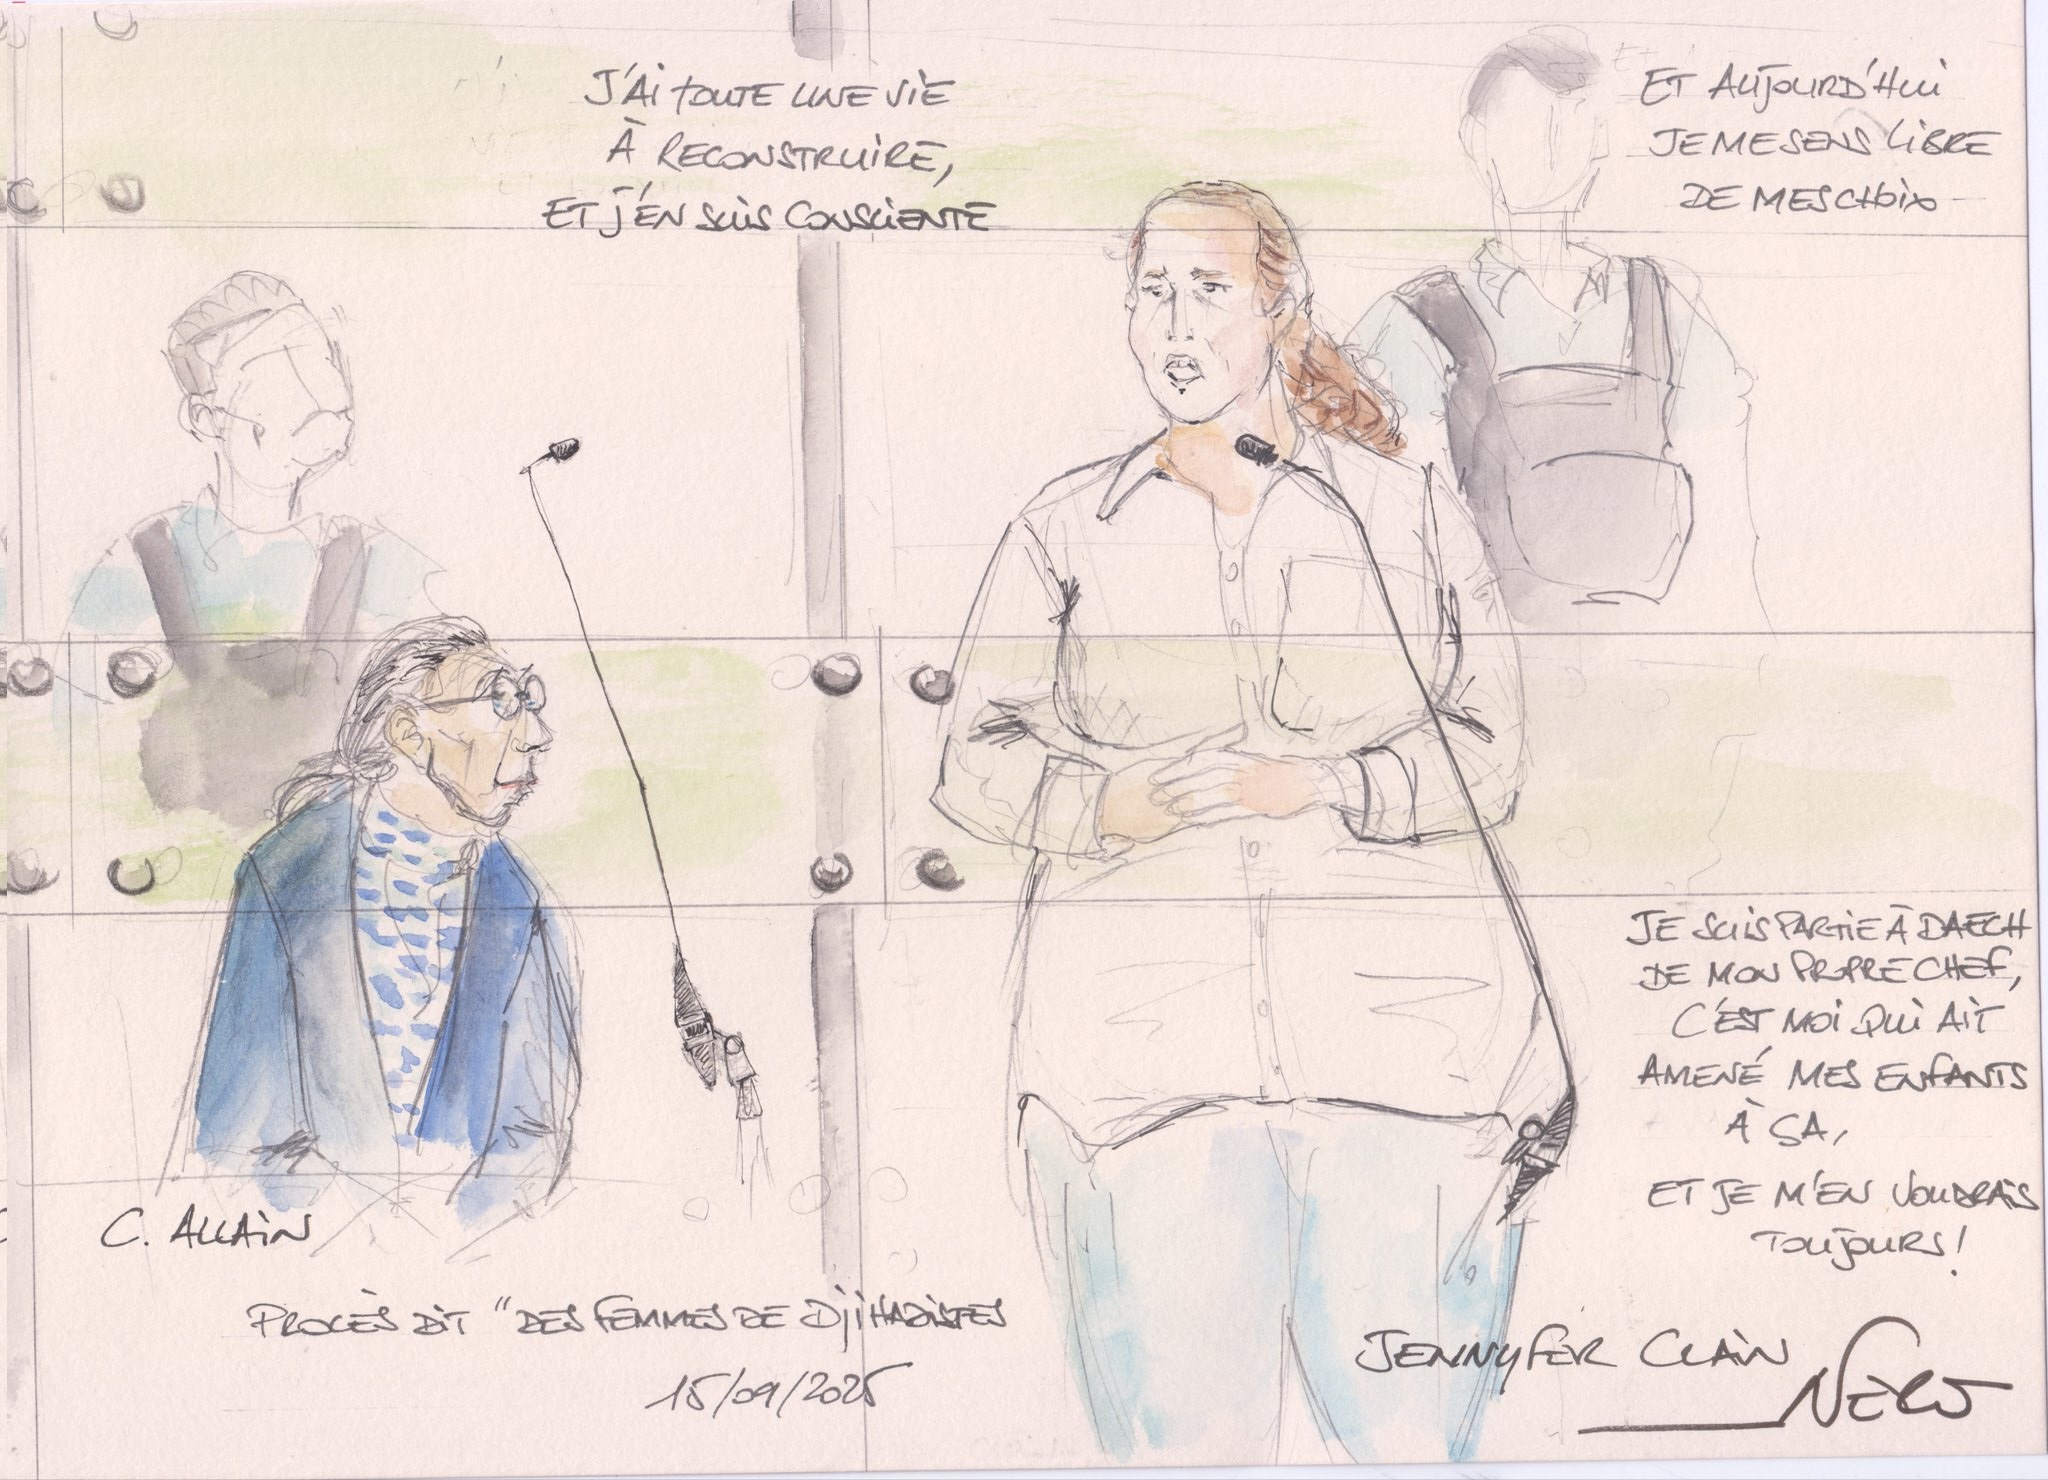 J'AI TOUTE UNE VIE
À RECONSTRUIRE,
ET J'EN SUIS CONSCIENTE
ET AUJOURD'HUI
JE ME SENS LIBRE
DE MES CHOIX
JE SUIS PARTIE À DAECH
DE MON PROPRE CHEF,
C'EST MOI QUI AIT
AMENÉ MES ENFANTS
À ÇA,
ET JE M'EN VOUDRAIS
TOUJOURS!
C. ALLAIN
PROCÈS DIT "DES FEMMES DE DJIHADISTES
15/09/2025
JENNYFER CLAIN
NERO